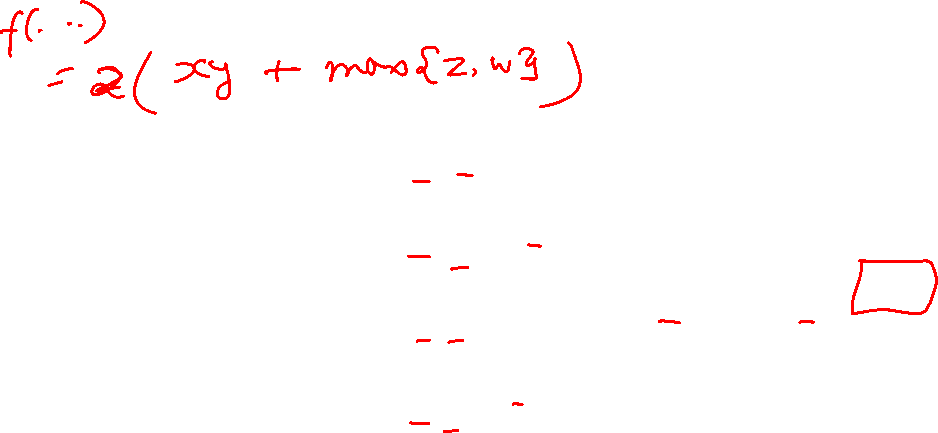 f(. ..)
= 2( xy + max{z, w})